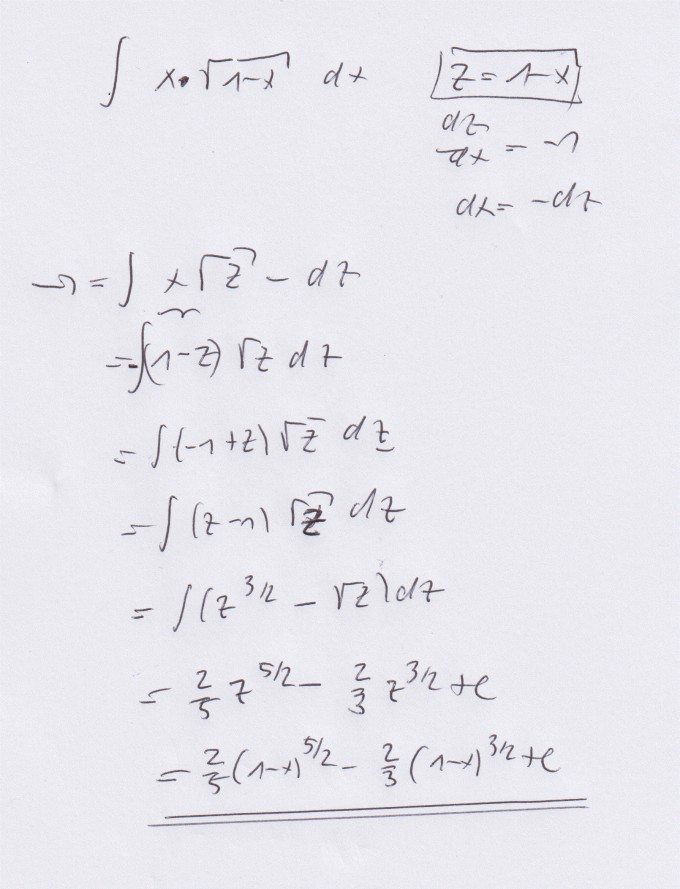 ∫ x·√(1-x) dx
z = 1-x
dz/dx = -1
dx = -dz
→ = ∫ x √z - dz
= -∫(1-z) √z dz
= ∫(-1+z) √z dz
= ∫ (z-1) √z dz
= ∫(z^3/2 - √z) dz
= 2/5 z^5/2 - 2/3 z^3/2 + C
= 2/5 (1-x)^5/2 - 2/3 (1-x)^3/2 + C